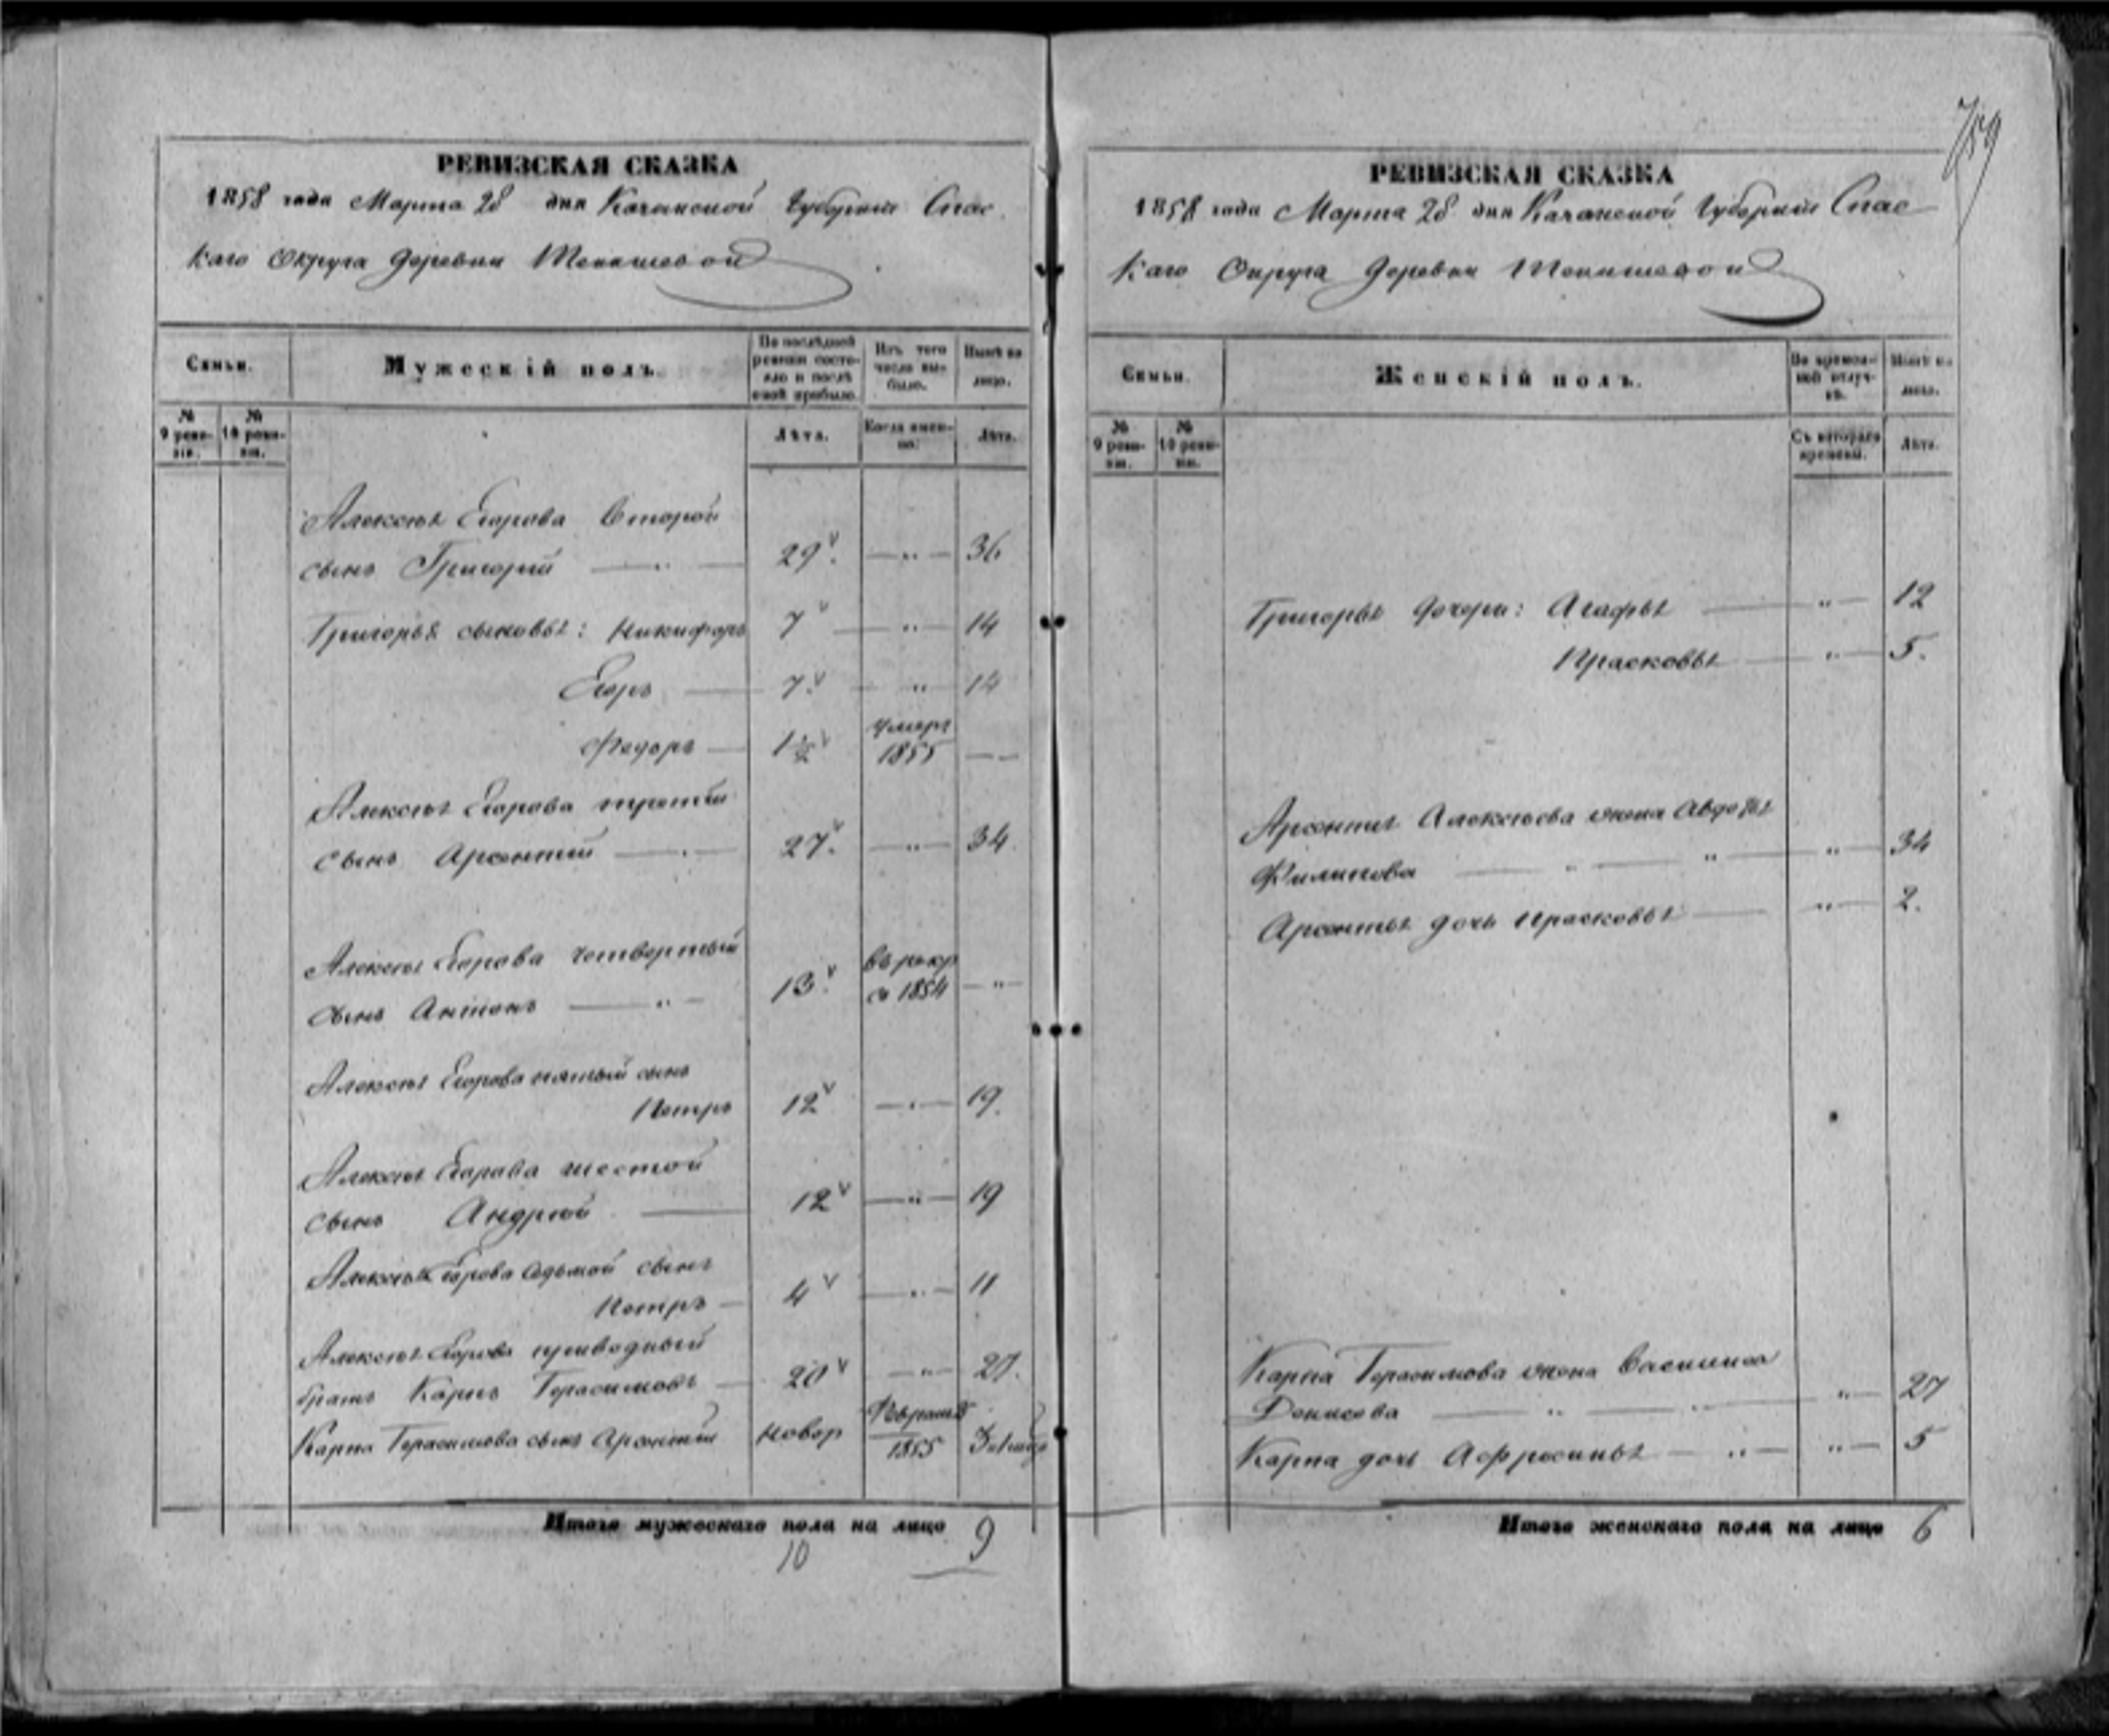 РЕВИЗСКАЯ СКАЗКА
1858 года Марта 28 дня Казанской Губернии Спас
каго Округа деревни
Семьи.
Мужескій полъ.
По послѣдней ревизіи состояло и послѣ оной прибыло.
Изъ того числа выбыло.
Нынѣ на лицо.
№ 9 ревизіи.
№ 10 ревизіи.
Лѣта.
Когда именно:
Лѣта.
Алексѣя Егорова Второй
сынъ Григорій 29 „ 36
Григорья сыновья: Никифоръ 7 „ 14
Егоръ 7 „ 14
Федоръ 1½ умеръ 1855
Алексѣя Егорова третій
сынъ Арсентій 27. „ 34
Алексѣя Егорова четвертый
сынъ Антонъ „ 13. въ рекр съ 1854 „
Алексѣя Егорова пятый сынъ
Петръ 12 „ 19.
Алексѣя Егорова шестой
сынъ Андрей 12 „ 19
Алексѣя Егорова седьмой сынъ
Петръ 4 „ 11
Алексѣя Егорова
братъ Карпъ Герасимовъ 20 „ 27.
Карпа Герасимова сынъ Арсентій новор 1855
Итого мужескаго пола на лицо 9
10
759
РЕВИЗСКАЯ СКАЗКА
1858 года Марта 28 дня Казанской Губерніи Спас
каго Округа деревни
Семьи.
Женскій полъ.
Во временной отлучкѣ.
Нынѣ на лицо.
№ 9 ревизіи.
№ 10 ревизіи.
Съ котораго времени.
Лѣта.
Григорья дочери: Агафья „ 12
Прасковья „ 5.
Арсентія Алексѣева жена Авдотья
Филипова „ „ „ 34
Арсентья дочь Прасковья „ 2.
Карпа Герасимова жена Василиса
Денисова „ „ „ 27
Карпа дочь Афросинья „ „ 5
Итого женскаго пола на лицо 6